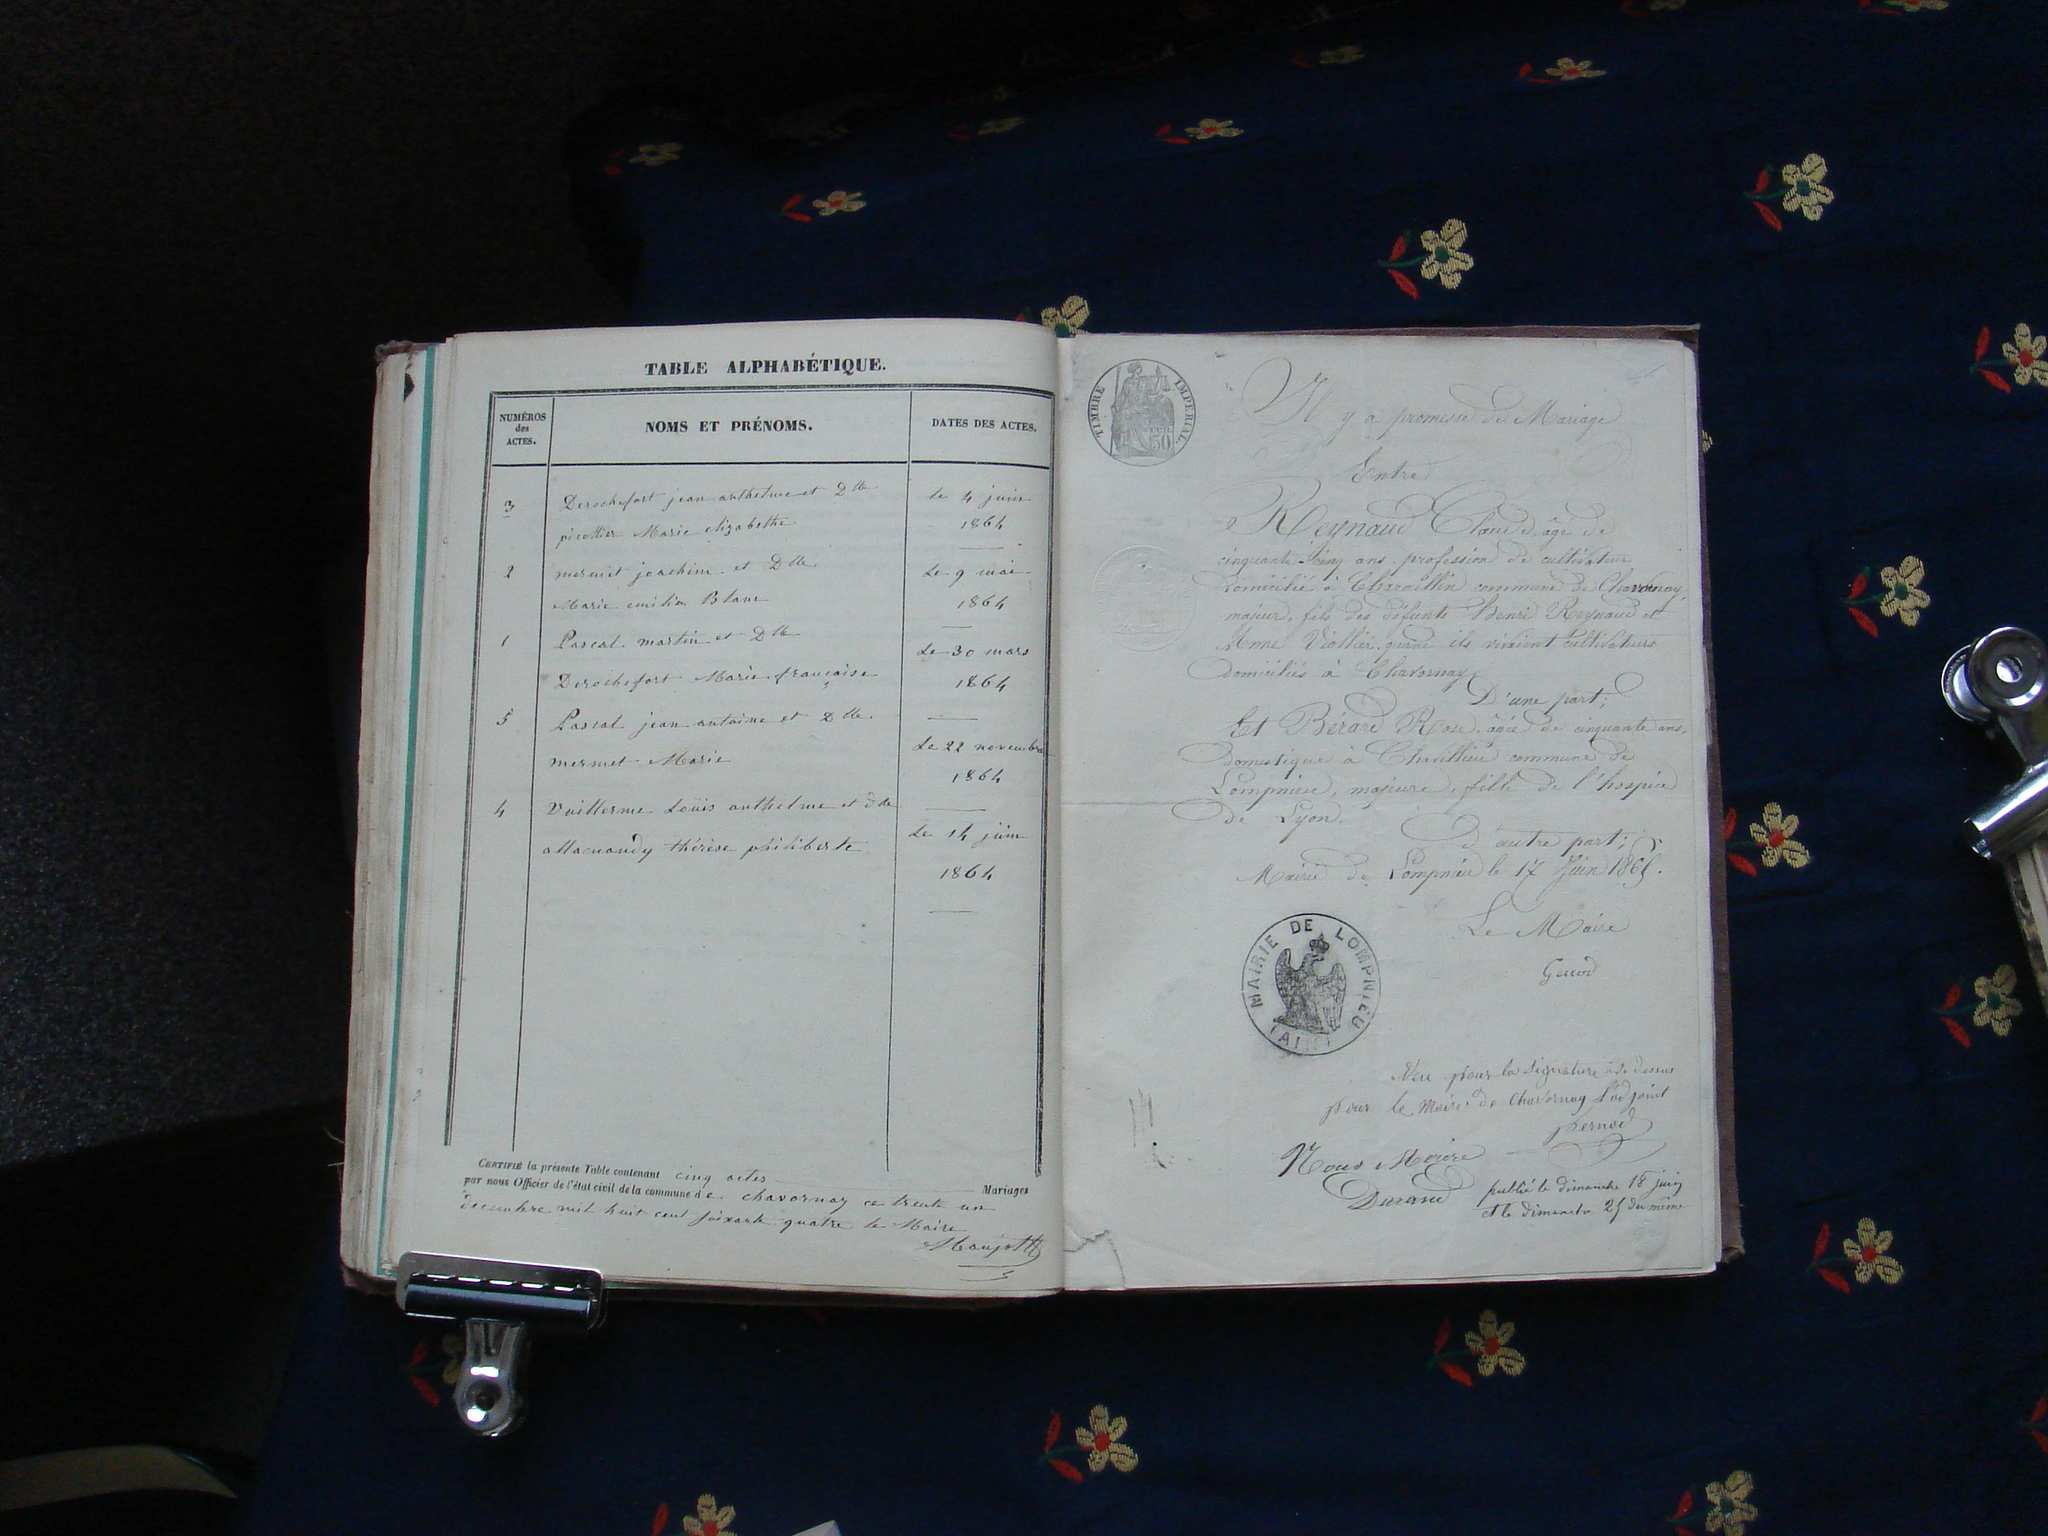 TABLE ALPHABÉTIQUE.
NUMÉROS
des
ACTES.
NOMS ET PRÉNOMS.
DATES DES ACTES.
3 Derochefort jean anthelme et Dlle le 4 juin
Marie elizabethe 1864
2 mermet joachim et Dlle Le 9 mai
Marie emilie Blanc 1864
1 Pascal martin et Dlle Le 30 mars
Derochefort Marie françoise 1864
5 Pascal jean antoine et Dlle Le 22 novembre
mermet Marie 1864
4 Vuillerme Louis anthelme et dlle Le 14 juin
thérèse philiberte 1864
CERTIFIÉ la présente Table contenant cinq actes Mariages
par nous Officier de l'état civil de la commune de chavornay ce trente un
decembre mil huit cent soixante quatre le Maire
TIMBRE IMPÉRIAL.
50
Il y a promesse de Mariage
Entre
Reynaud Claude âgé de
cinquante cinq ans profession de cultivateur
domicilié à commune de Chavornay,
majeur, fils des défunts Henri Reynaud et
Anne Viollier quand ils vivaient cultivateurs
domiciliés à Chavornay
D'une part;
Et Bérard Rose âgée de cinquante ans,
domestique à commune de
Lompnieu, majeure, fille de l'hospice
de Lyon.
D'autre part;
Mairie de Lompnieu le 17 Juin 1865.
Le Maire
MAIRIE DE LOMPNIEU
(AIN)
Vu pour la signature ci dessus
pour le Maire de Chavornay L'adjoint
Nous Maire
publié le dimanche 18 juin
et le dimanche 25 du même